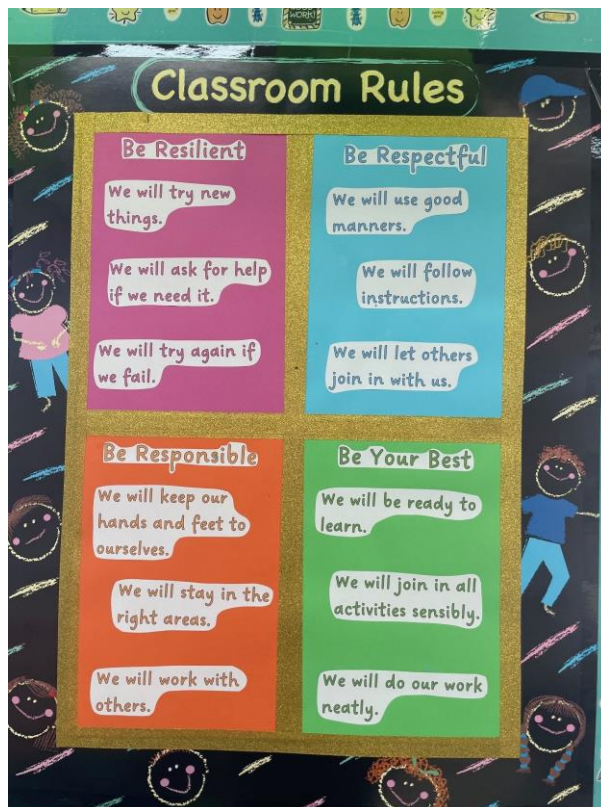 WORK!
Classroom Rules
Be Resilient
We will try new
things.
We will ask for help
if we need it.
We will try again if
we fail.
Be Respectful
We will use good
manners.
We will follow
instructions.
We will let others
join in with us.
Be Responsible
We will keep our
hands and feet to
ourselves.
We will stay in the
right areas.
We will work with
others.
Be Your Best
We will be ready to
learn.
We will join in all
activities sensibly.
We will do our work
neatly.